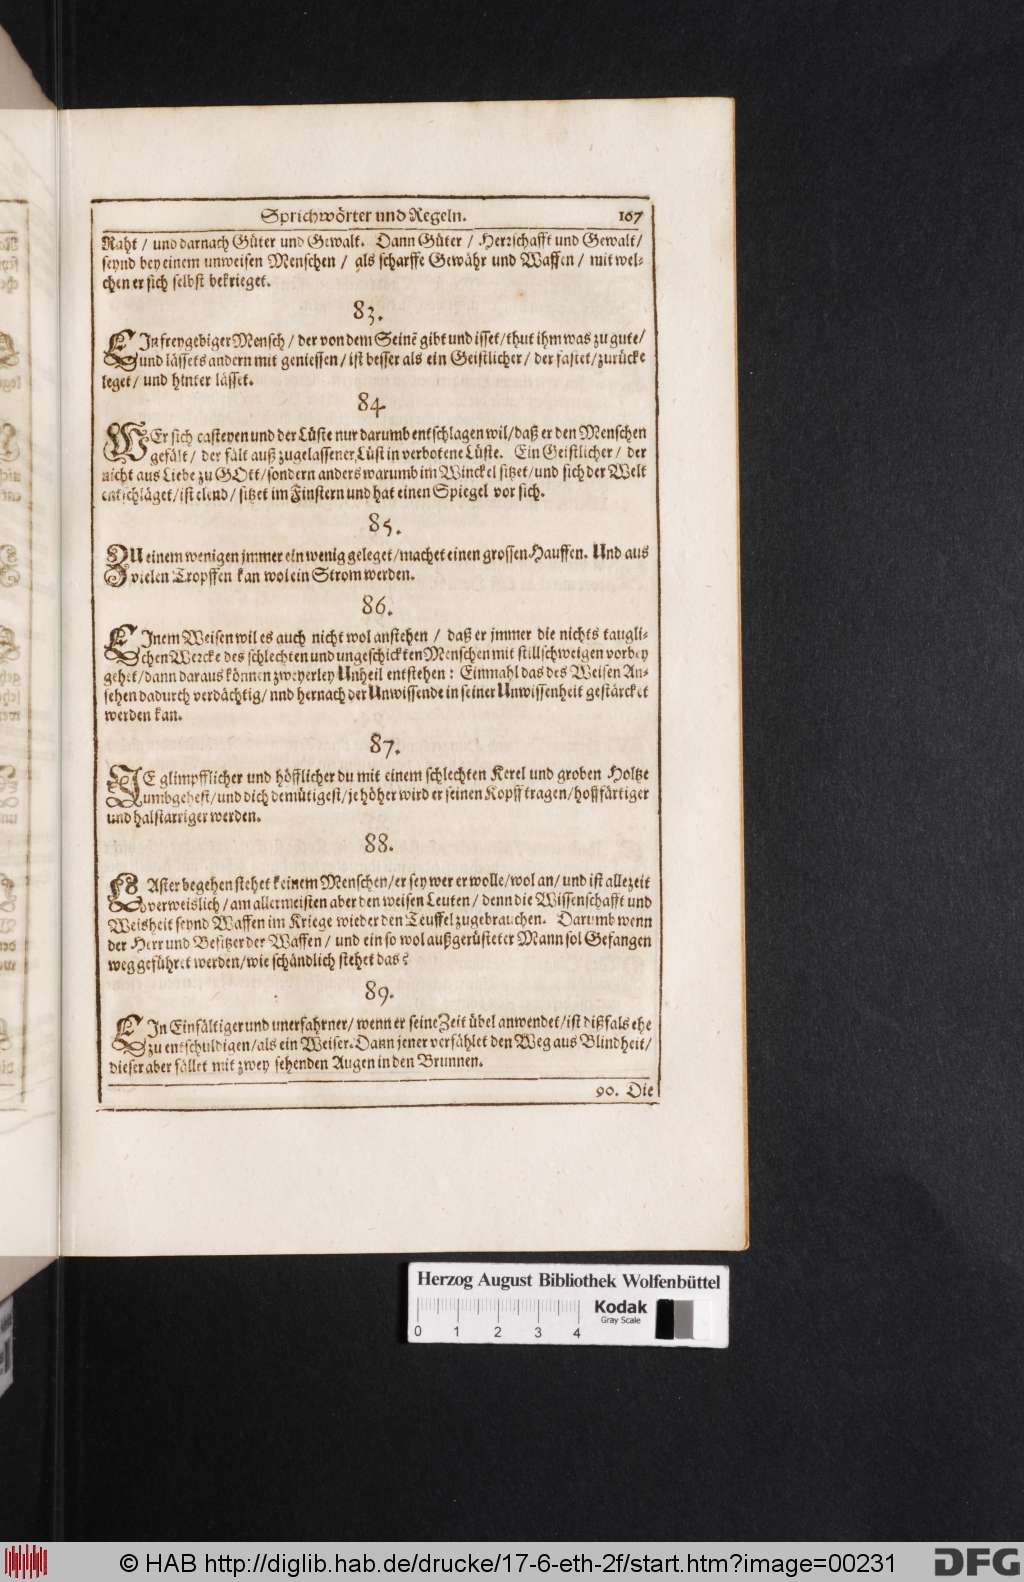 Sprichwörter und Regeln. 167
Raht / und darnach Güter und Gewalt. Dann Güter / Herrschafft und Gewalt /
seynd bey einem unweisen Menschen / als scharffe Gewähr und Waffen / mit wel-
chen er sich selbst bekrieget.
83.
EIn freygebiger Mensch / der von dem Seinē gibt und isset / thut ihm was zu gute /
und lässets andern mit geniessen / ist besser als ein Geistlicher / der fastet / zurücke
leget / und hinter lässet.
84.
WEr sich casteyen und der Lüste nur darumb entschlagen wil / daß er den Menschen
gefält / der fält auß zugelassener Lüst in verbotene Lüste. Ein Geistlicher / der
nicht aus Liebe zu GOtt / sondern anders warumb im Winckel sitzet / und sich der Welt
entschläget / ist elend / sitzet im Finstern und hat einen Spiegel vor sich.
85.
ZU einem wenigen jmmer ein wenig geleget / machet einen grossen Hauffen. Und aus
vielen Tropffen kan wol ein Strom werden.
86.
EInem Weisen wil es auch nicht wol anstehen / daß er jmmer die nichts taugli-
chen Wercke des schlechten und ungeschickten Menschen mit stillschweigen vorbey
gehet / dann daraus können zweyerley Unheil entstehen: Einmahl das des Weisen An-
sehen dadurch verdächtig / und hernach der Unwissende in seiner Unwissenheit gestärcket
werden kan.
87.
JE glimpfflicher und höfflicher du mit einem schlechten Kerel und groben Holtze
umbgehest / und dich demütigest / je höher wird er seinen Kopff tragen / hoffärtiger
und halstarriger werden.
88.
LAster begehen stehet keinem Menschen / er sey wer er wolle / wol an / und ist allezeit
verweislich / am allermeisten aber den weisen Leuten / denn die Wissenschafft und
Weisheit seynd Waffen im Kriege wieder den Teuffel zugebrauchen. Darumb wenn
der Herr und Besitzer der Waffen / und ein so wol außgerüsteter Mann sol Gefangen
weggeführet werden / wie schändlich stehet das?
89.
EIn Einfältiger und unerfahrner / wenn er seine Zeit übel anwendet / ist dißfals ehe
zu entschuldigen / als ein Weiser. Dann jener verfählet den Weg aus Blindheit /
dieser aber fället mit zwey sehenden Augen in den Brunnen.
90. Die
Herzog August Bibliothek Wolfenbüttel
Kodak
Gray Scale
0 1 2 3 4
© HAB http://diglib.hab.de/drucke/17-6-eth-2f/start.htm?image=00231
DFG